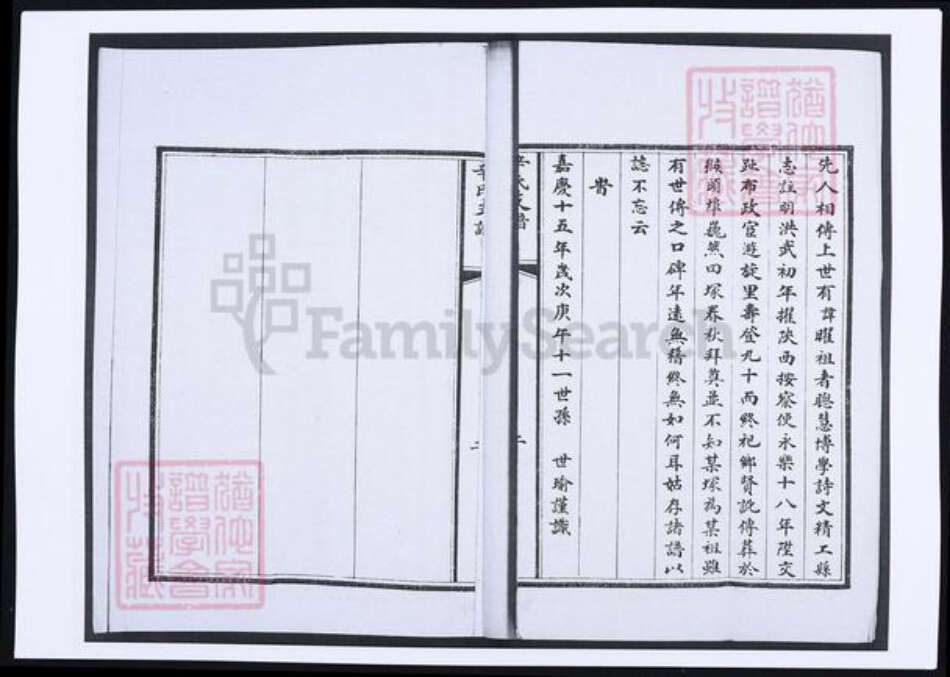 先人相傳上世有諱曜祖者聰慧博學詩文精工縣
志註明洪武初年擢陝西按察使永樂十八年陞交
趾布政宦遊旋里壽登九十而終祀鄉賢訛傳葬於
猴頭埠巍然四塚春秋拜奠並不知某塚為某祖雖
有世傳之口碑年遠無稽終無如何耳姑存諸譜以
誌不忘云
嘉慶十五年歲次庚午十一世孫 世瑜謹識
辛氏支譜
二
FamilySearch